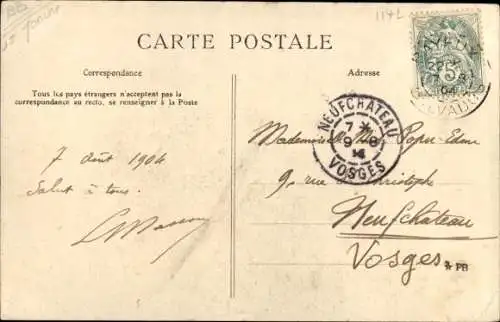 114L
CARTE POSTALE
Correspondance
Tous les pays étrangers n'acceptent pas la
correspondance au recto, se renseigner à la Poste
7 août 1904
Salut à tous.
Adresse
5
BAYEUX
04
CALVADOS
NEUFCHATEAU
7 *
9 - 8
VOSGES
Mademoiselle
9, rue St Christophe
Neufchateau
Vosges
* PB